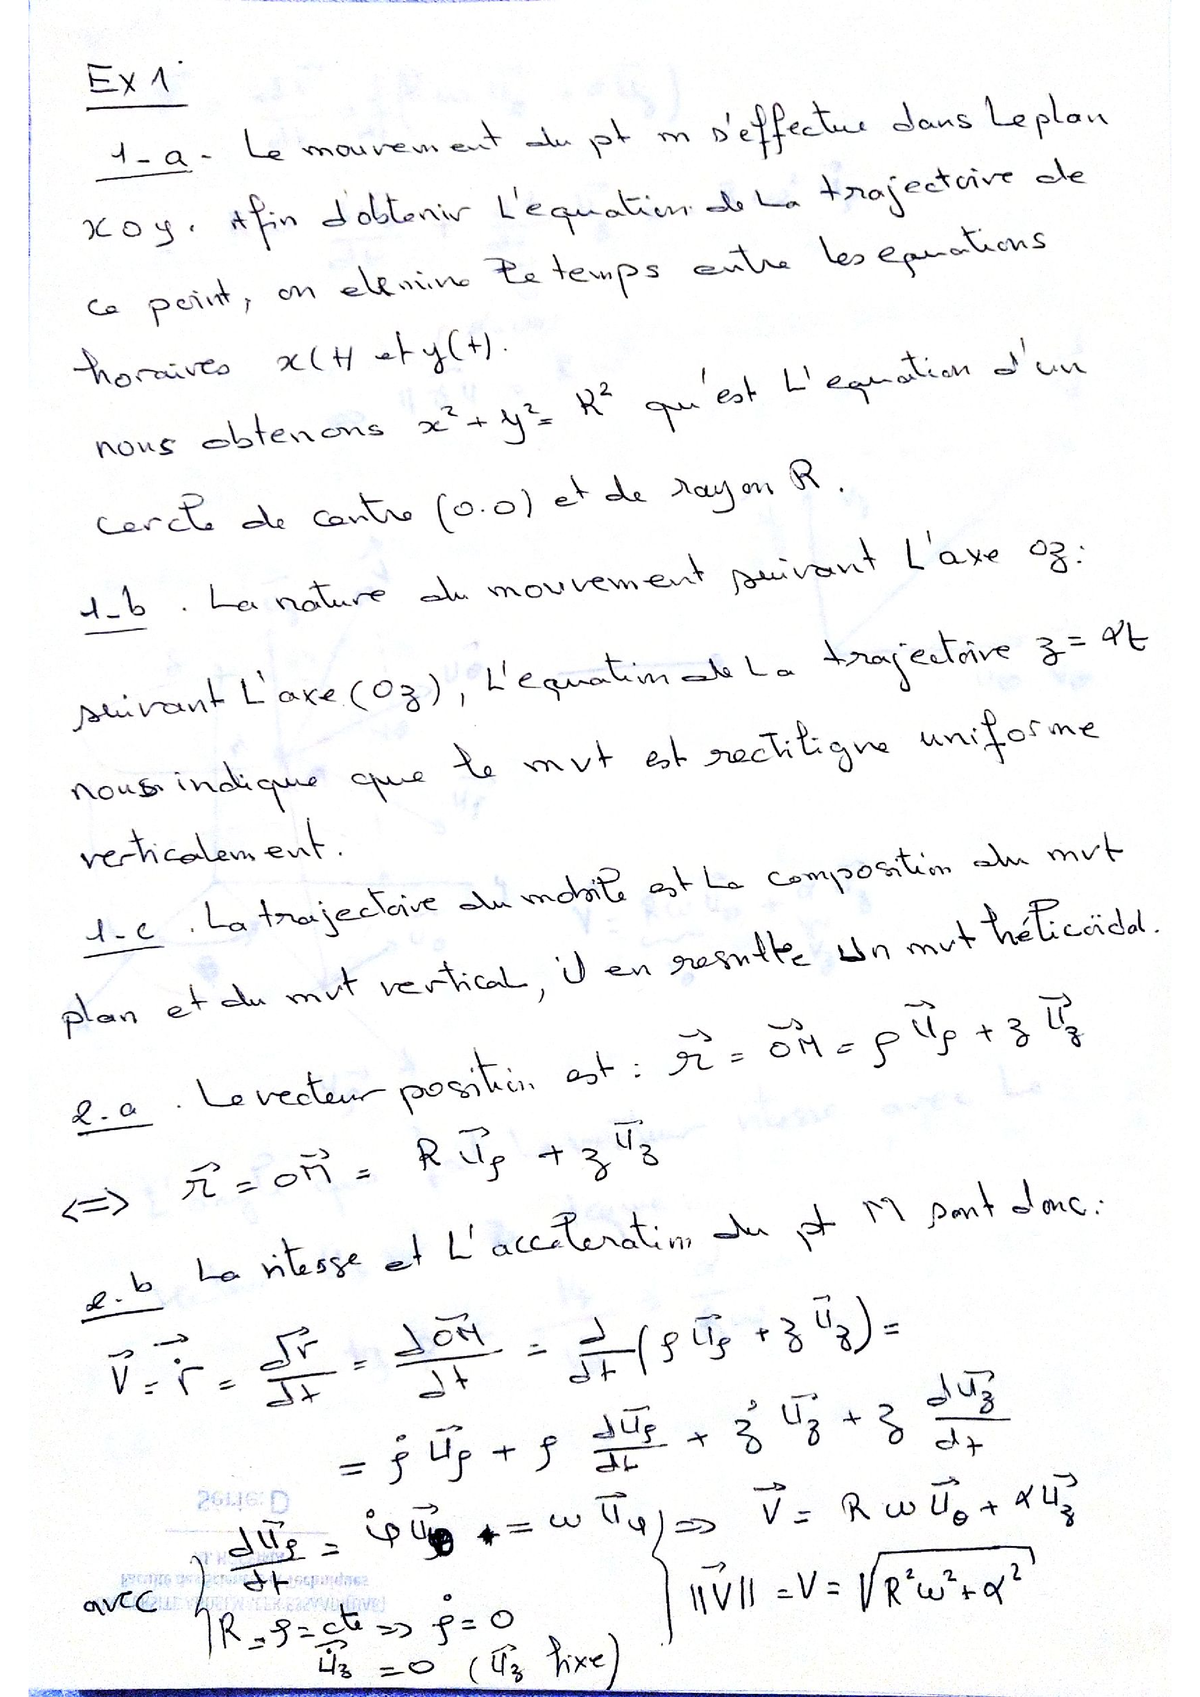 Ex 1
1-a- Le mouvement du pt m s'effectue dans Le plan
xoy. Afin d'obtenir L'equation de La trajectoire de
ce point, on elimine Le temps entre les equations
horaires x(t) et y(t).
nous obtenons x² + y² = R² qu'est L'equation d'un
cercle de centre (0.0) et de rayon R.
1-b . La nature du mouvement suivant L'axe oz:
suivant L'axe (Oz), L'equation de La trajectoire z = αt
nous indique que le mvt est rectiligne uniforme
verticalement.
1-c . La trajectoire du mobile est La composition du mvt
plan et du mvt vertical, il en resulte un mvt hélicoïdal.
2-a . Le vecteur position est : r⃗ = OM⃗ = ρ u⃗ρ + z u⃗z
<=> r⃗ = OM⃗ = R u⃗ρ + z u⃗z
2-b La vitesse et L'acceleration du pt M sont donc:
V⃗ = ṙ⃗ = dr⃗/dt = dOM⃗/dt = d/dt (ρ u⃗ρ + z u⃗z) =
= ρ̇ u⃗ρ + ρ du⃗ρ/dt + ż u⃗z + z du⃗z/dt
avec { du⃗ρ/dt = φ̇ u⃗φ = ω u⃗φ } => V⃗ = R ω u⃗θ + α u⃗z
R = ρ = cte => ρ̇ = 0 ||V⃗|| = V = √(R²ω² + α²)
u̇⃗z = 0 (u⃗z fixe)
Série: D